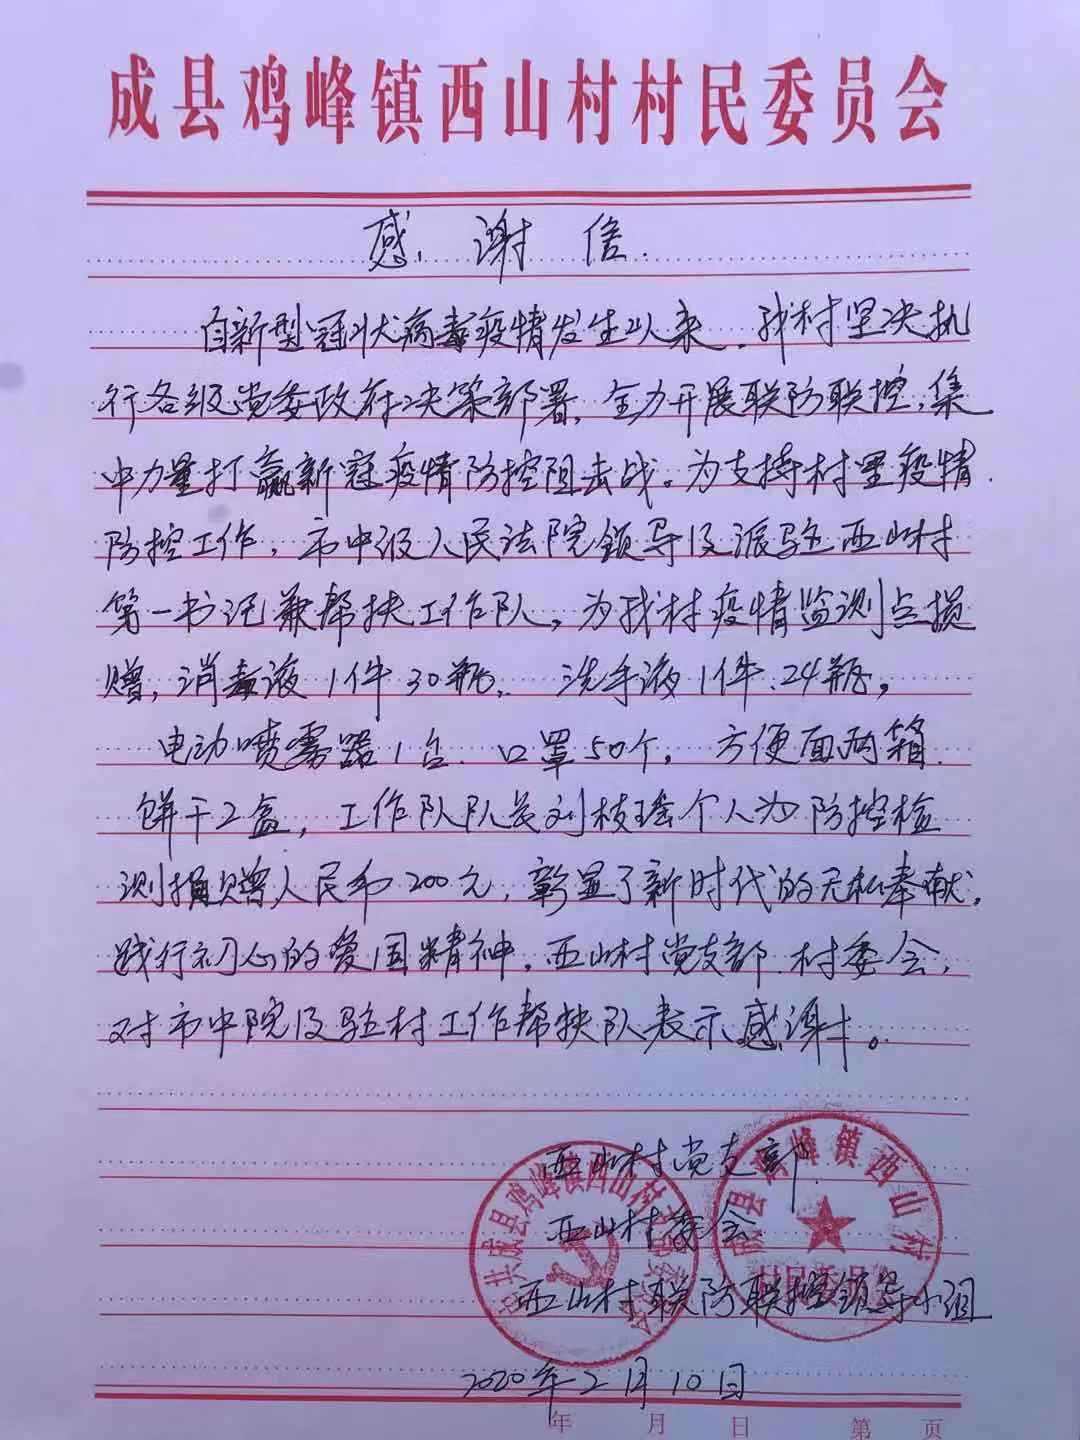 成县鸡峰镇西山村村民委员会
感谢信
自新型冠状病毒疫情发生以来，我村坚决执
行各级党委政府决策部署，全力开展联防联控，集
中力量打赢新冠疫情防控阻击战。为支持村里疫情
防控工作，市中级人民法院领导及派驻西山村
第一书记兼帮扶工作队，为我村疫情监测点损
赠，消毒液1件30瓶，洗手液1件、24瓶，
电动喷雾器1台、口罩50个，方便面两箱、
饼干2盒，工作队队长刘枝瑶个人为防控检
测捐赠人民币200元，彰显了新时代的无私奉献，
践行初心的爱国精神，西山村党支部、村委会，
对市中院及驻村工作帮扶队表示感谢。
西山村党支部
西山村委会
西山村联防联控领导小组
2020年2月10日
年 月 日 第 页